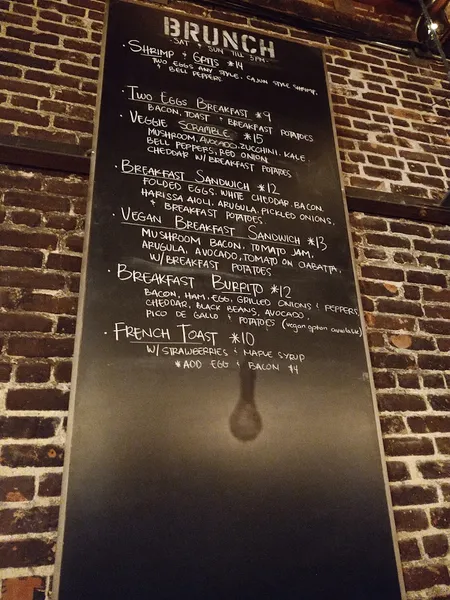 BRUNCH
· SAT + SUN TILL 5PM ·
· SHRIMP & GRITS *14
TWO EGGS ANY STYLE, CAJUN STYLE SHRIMP,
& BELL PEPPERS
· TWO EGGS BREAKFAST *9
BACON, TOAST & BREAKFAST POTATOES
· VEGGIE SCRAMBLE *15
MUSHROOM, AVOCADO, ZUCCHINI, KALE,
BELL PEPPERS, RED ONION,
CHEDDAR W/ BREAKFAST POTATOES
· BREAKFAST SANDWICH *12
FOLDED EGGS, WHITE CHEDDAR, BACON,
HARISSA AIOLI, ARUGULA, PICKLED ONIONS,
& BREAKFAST POTATOES
· VEGAN BREAKFAST SANDWICH *13
MUSHROOM BACON, TOMATO JAM,
ARUGULA, AVOCADO, TOMATO ON CIABATTA,
W/ BREAKFAST POTATOES
· BREAKFAST BURRITO *12
BACON, HAM, EGG, GRILLED ONIONS & PEPPERS,
CHEDDAR, BLACK BEANS, AVOCADO,
PICO DE GALLO & POTATOES (vegan option available)
· FRENCH TOAST *10
W/ STRAWBERRIES & MAPLE SYRUP
*ADD EGG & BACON $4